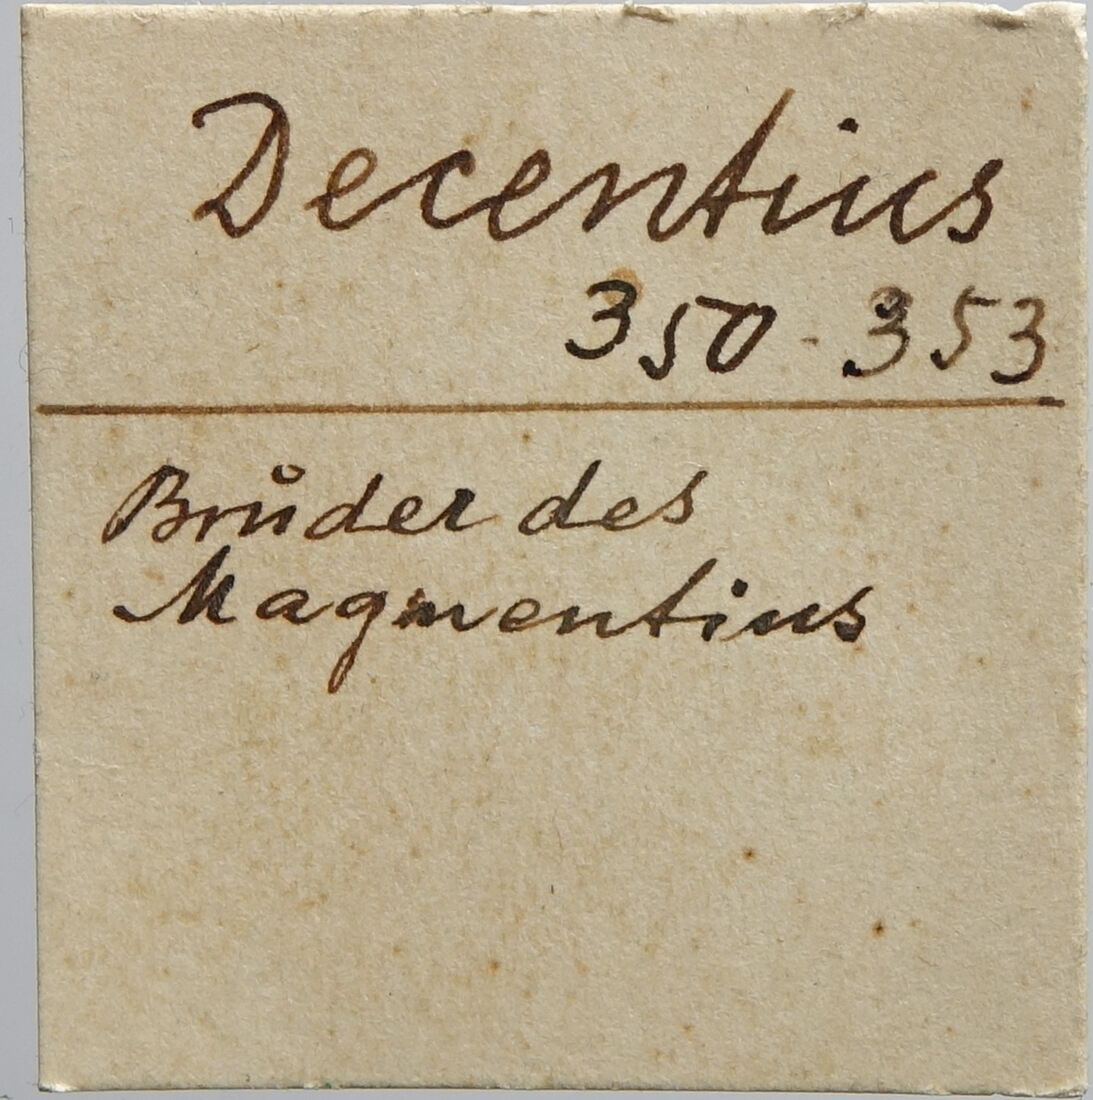 Decentius
350 - 353
Bruder des
Magnentius